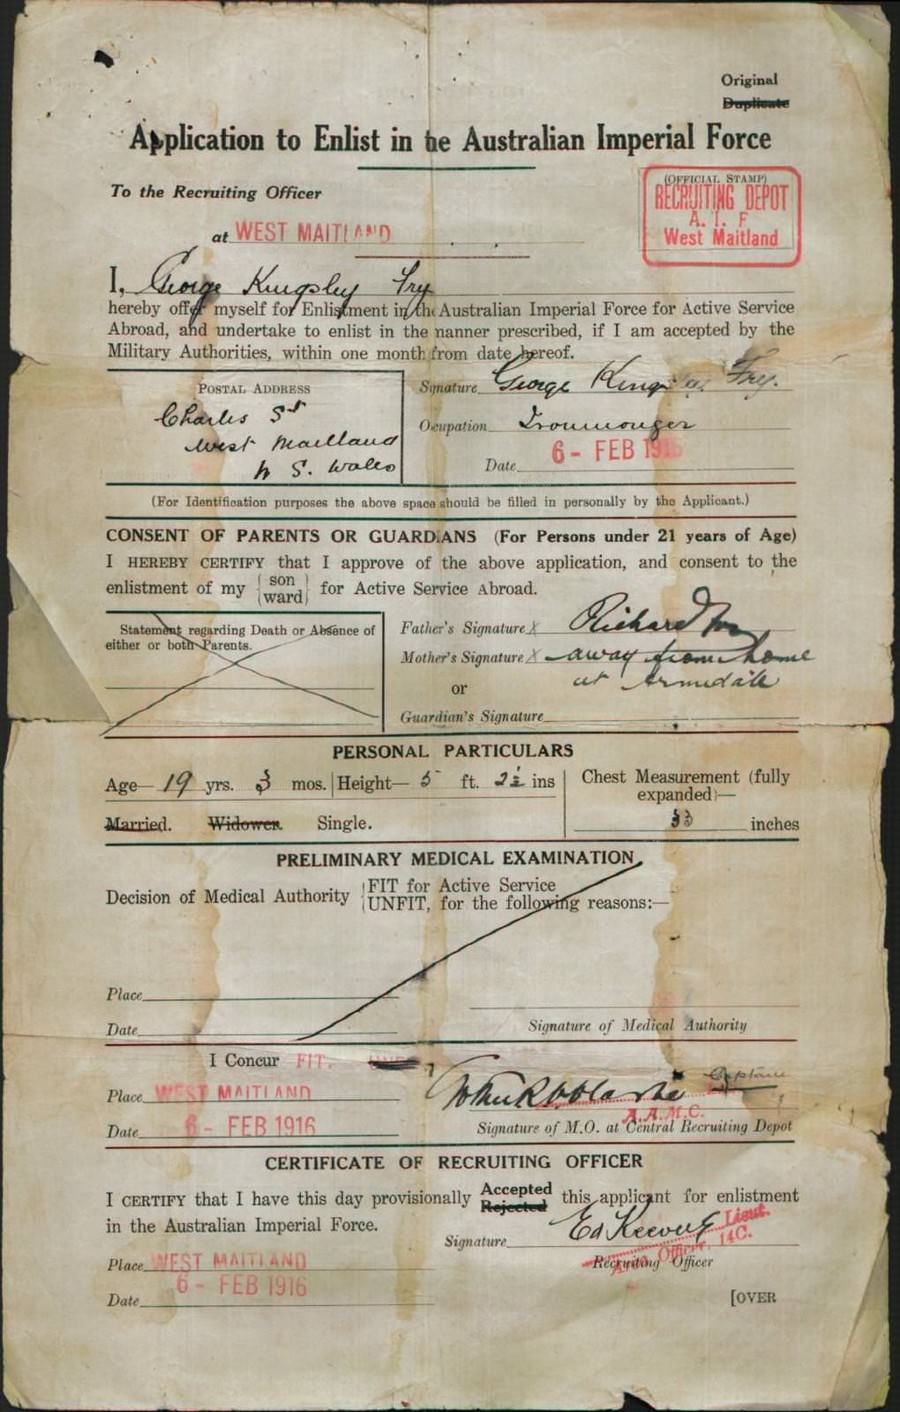 Original
Duplicate
Application to Enlist in the Australian Imperial Force
To the Recruiting Officer
(OFFICIAL STAMP)
RECRUITING DEPOT
A. I. F
West Maitland
at WEST MAITLAND
I, George Kingsley Fry
hereby offer myself for Enlistment in the Australian Imperial Force for Active Service
Abroad, and undertake to enlist in the manner prescribed, if I am accepted by the
Military Authorities, within one month from date hereof.
POSTAL ADDRESS
Charles St
West Maitland
N S. Wales
Signature George Kingsley Fry.
Occupation Ironmonger
Date 6 - FEB 1916
(For Identification purposes the above space should be filled in personally by the Applicant.)
CONSENT OF PARENTS OR GUARDIANS (For Persons under 21 years of Age)
I HEREBY CERTIFY that I approve of the above application, and consent to the
enlistment of my (son ward) for Active Service Abroad.
Statement regarding Death or Absence of
either or both Parents.
Father's Signature X Richard Fry
Mother's Signature X away from home
at Armidale
or
Guardian's Signature
PERSONAL PARTICULARS
Age— 19 yrs. 3 mos. Height— 5 ft. 2½ ins
Chest Measurement (fully
expanded)—
33 inches
Married. Widower. Single.
PRELIMINARY MEDICAL EXAMINATION
Decision of Medical Authority
FIT for Active Service
UNFIT, for the following reasons:—
Place
Date
Signature of Medical Authority
I Concur FIT.
Place WEST MAITLAND
Captain
A.A.M.C.
Date 6 - FEB 1916
Signature of M.O. at Central Recruiting Depot
CERTIFICATE OF RECRUITING OFFICER
I CERTIFY that I have this day provisionally Accepted Rejected this applicant for enlistment
in the Australian Imperial Force.
Signature
Lieut.
Officer, 14C.
Recruiting Officer
Place WEST MAITLAND
Date 6 - FEB 1916
[OVER